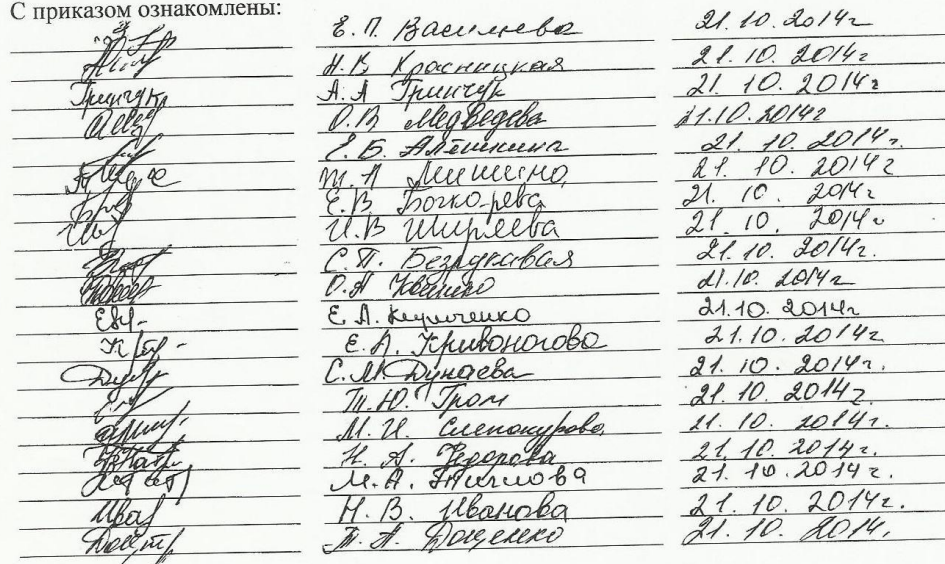 С приказом ознакомлены:
Е. П. Васильева 21.10.2014г
Н.В Красницкая 21.10.2014г
Гринчук А.А Гринчук 21.10.2014г
О.В Медведева 21.10.2014г
Е.Б. Алёшкина 21.10.2014г.
Т.А Мишина 21.10.2014г
Е.В 21.10.2014г
И.В Ширяева 21.10.2014г
С.Т. Безрукавая 21.10.2014г.
О.А 21.10.2014г
Е.А. Кириченко 21.10.2014г
Е.А. Кривоногова 21.10.2014г.
С.М. Дунаева 21.10.2014г.
Т.Ю. Гром 21.10.2014г
М.И. Слепокурова 21.10.2014г.
Н.А. Федорова 21.10.2014г.
М.А. 21.10.2014г.
Н.В. Иванова 21.10.2014г.
Т.А. Доценко 21.10.2014.